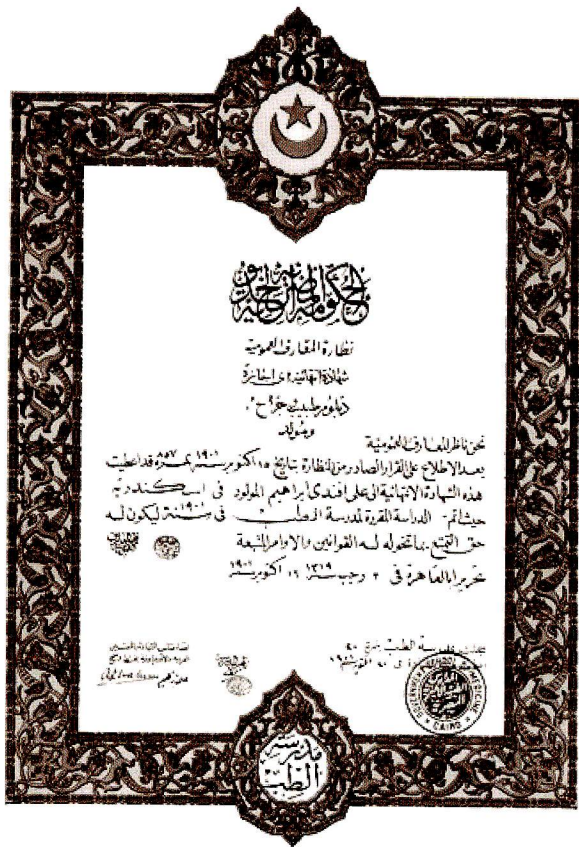 الحكومة المصرية الخديوية
نظارة المعارف العمومية
شهادة انتهائية اى اجازة
دبلوم طبيب جراح
نحن ناظر المعارف العمومية
بعد الاطلاع على القرار الصادر من النظارة بتاريخ ١٥ اكتوبر سنة ١٩٠١ بنمرة ٨٥٧ قد اعطيت
هذه الشهادة الانتهائية الى على افندى ابراهيم المولود فى اسكندرية
حيث اتم الدراسة المقررة لمدرسة الطب فى سنة ١٩٠١ ليكون له
حق التمتع بما تخوله له القوانين والاوامر المتبعة
تحريرا بالقاهرة فى ٣ رجب سنة ١٣١٩ ١٦ اكتوبر سنة ١٩٠١
مدرسة الطب بنمرة
GOVERNMENT SCHOOL OF MEDICINE
CAIRO
مدرسة
الطب